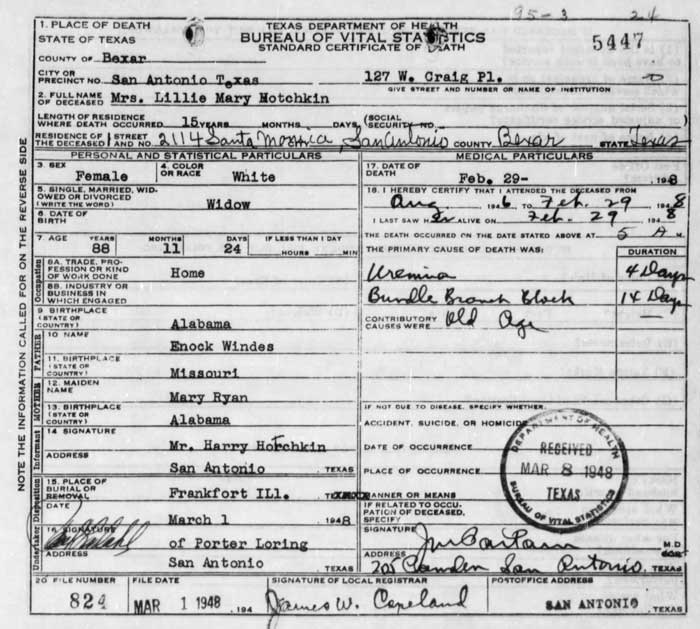 95-3 24
1. PLACE OF DEATH
STATE OF TEXAS
TEXAS DEPARTMENT OF HEALTH
BUREAU OF VITAL STATISTICS
STANDARD CERTIFICATE OF DEATH
5447
COUNTY OF Bexar
CITY OR PRECINCT NO. San Antonio Texas 127 W. Craig Pl.
GIVE STREET AND NUMBER OR NAME OF INSTITUTION
2. FULL NAME OF DECEASED Mrs. Lillie Mary Hotchkin
LENGTH OF RESIDENCE WHERE DEATH OCCURRED 15 YEARS MONTHS DAYS (SOCIAL SECURITY NO.
RESIDENCE OF THE DECEASED STREET AND NO. 2114 Santa Monica, San Antonio COUNTY Bexar STATE Texas
PERSONAL AND STATISTICAL PARTICULARS
3. SEX Female
4. COLOR OR RACE White
5. SINGLE, MARRIED, WIDOWED OR DIVORCED (WRITE THE WORD) Widow
6. DATE OF BIRTH
7. AGE YEARS 88 MONTHS 11 DAYS 24 IF LESS THAN 1 DAY HOURS MIN.
Occupation
8A. TRADE, PROFESSION OR KIND OF WORK DONE Home
8B. INDUSTRY OR BUSINESS IN WHICH ENGAGED
9. BIRTHPLACE (STATE OR COUNTRY) Alabama
FATHER
10 NAME Enock Windes
11. BIRTHPLACE (STATE OR COUNTRY) Missouri
MOTHER
12. MAIDEN NAME Mary Ryan
13. BIRTHPLACE (STATE OR COUNTRY) Alabama
Informant
14 SIGNATURE Mr. Harry Hotchkin
ADDRESS San Antonio, TEXAS
Undertaker Disposition
15. PLACE OF BURIAL OR REMOVAL Frankfort ILl. TEXAS
DATE March 1 1948
16 SIGNATURE of Porter Loring
ADDRESS San Antonio, TEXAS
MEDICAL PARTICULARS
17. DATE OF DEATH Feb. 29- 1948
18. I HEREBY CERTIFY THAT I ATTENDED THE DECEASED FROM
Aug 1946 TO Feb. 29 1948
I LAST SAW H er ALIVE ON Feb. 29 1948
THE DEATH OCCURRED ON THE DATE STATED ABOVE AT 5 A M.
THE PRIMARY CAUSE OF DEATH WAS: DURATION
Uremia 4 Days
Bundle Branch Block 14 Days
CONTRIBUTORY CAUSES WERE Old Age
IF NOT DUE TO DISEASE, SPECIFY WHETHER:
ACCIDENT, SUICIDE, OR HOMICIDE
DATE OF OCCURRENCE
PLACE OF OCCURRENCE
MANNER OR MEANS
IF RELATED TO OCCUPATION OF DECEASED, SPECIFY
SIGNATURE M.D.
ADDRESS 705 Camden San Antonio, TEXAS
DEPARTMENT OF HEALTH
RECEIVED
MAR 8 1948
TEXAS
BUREAU OF VITAL STATISTICS
20 FILE NUMBER 824
FILE DATE MAR 1 1948 , 194
SIGNATURE OF LOCAL REGISTRAR James W. Copeland
POSTOFFICE ADDRESS SAN ANTONIO, TEXAS
NOTE THE INFORMATION CALLED FOR ON THE REVERSE SIDE